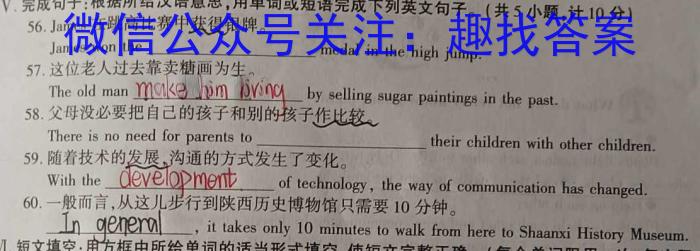 V. 完成句子:根据所给汉语意思,用单词或短语完成下列英文句子。(共5小题,计10分)
微信公众号关注:趣找答案
56. Jan
medal in the high jump.
57. 这位老人过去靠卖糖画为生。
The old man make him living by selling sugar paintings in the past.
58. 父母没必要把自己的孩子和别的孩子作比较。
There is no need for parents to ____ their children with other children.
59. 随着技术的发展,沟通的方式发生了变化。
With the development of technology, the way of communication has changed.
60. 一般而言,从这儿步行到陕西历史博物馆只需要 10 分钟。
In general, it takes only 10 minutes to walk from here to Shaanxi History Museum.
短文填空:用方框中所给单词的适当形式填空